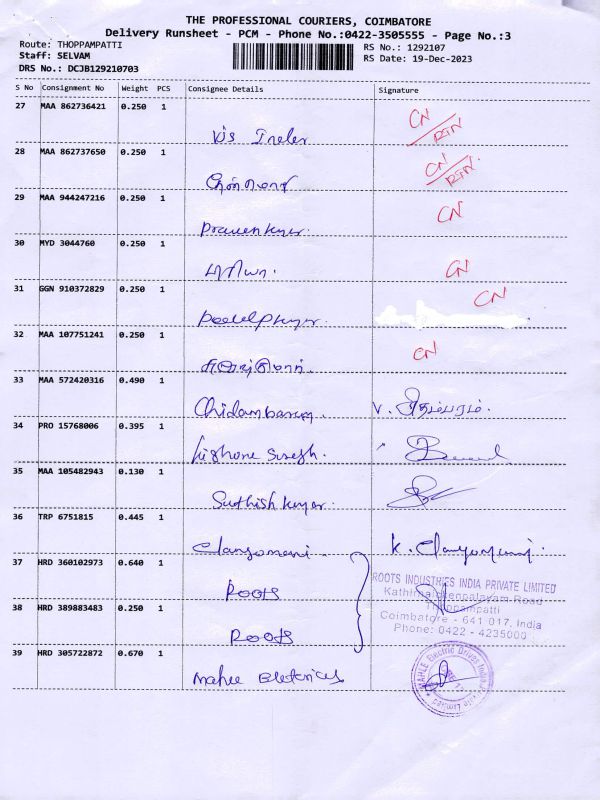 THE PROFESSIONAL COURIERS, COIMBATORE
Delivery Runsheet - PCM - Phone No.:0422-3505555 - Page No.:3
Route: THOPPAMPATTI
RS No.: 1292107
Staff: SELVAM
RS Date: 19-Dec-2023
DRS No.: DCJB129210703
S No Consignment No Weight PCS Consignee Details Signature
27 MAA 862736421 0.250 1
CN
RTN
28 MAA 862737650 0.250 1
CN
RTN
29 MAA 944247216 0.250 1
CN
30 MYD 3044760 0.250 1
CN
31 GGN 910372829 0.250 1
CN
32 MAA 107751241 0.250 1
CN
33 MAA 572420316 0.490 1
Chidambaram V. சிதம்பரம்.
34 PRO 15768006 0.395 1
35 MAA 105482943 0.130 1
Suthish kumar.
36 TRP 6751815 0.445 1
37 HRD 360102973 0.640 1
ROOTS
ROOTS INDUSTRIES INDIA PRIVATE LIMITED
Thoppampatti
38 HRD 389883483 0.250 1
Coimbatore - 641 017, India
ROOTS
Phone: 0422 - 4235000
39 HRD 305722872 0.670 1
MAHLE Electric Drives India Private Limited